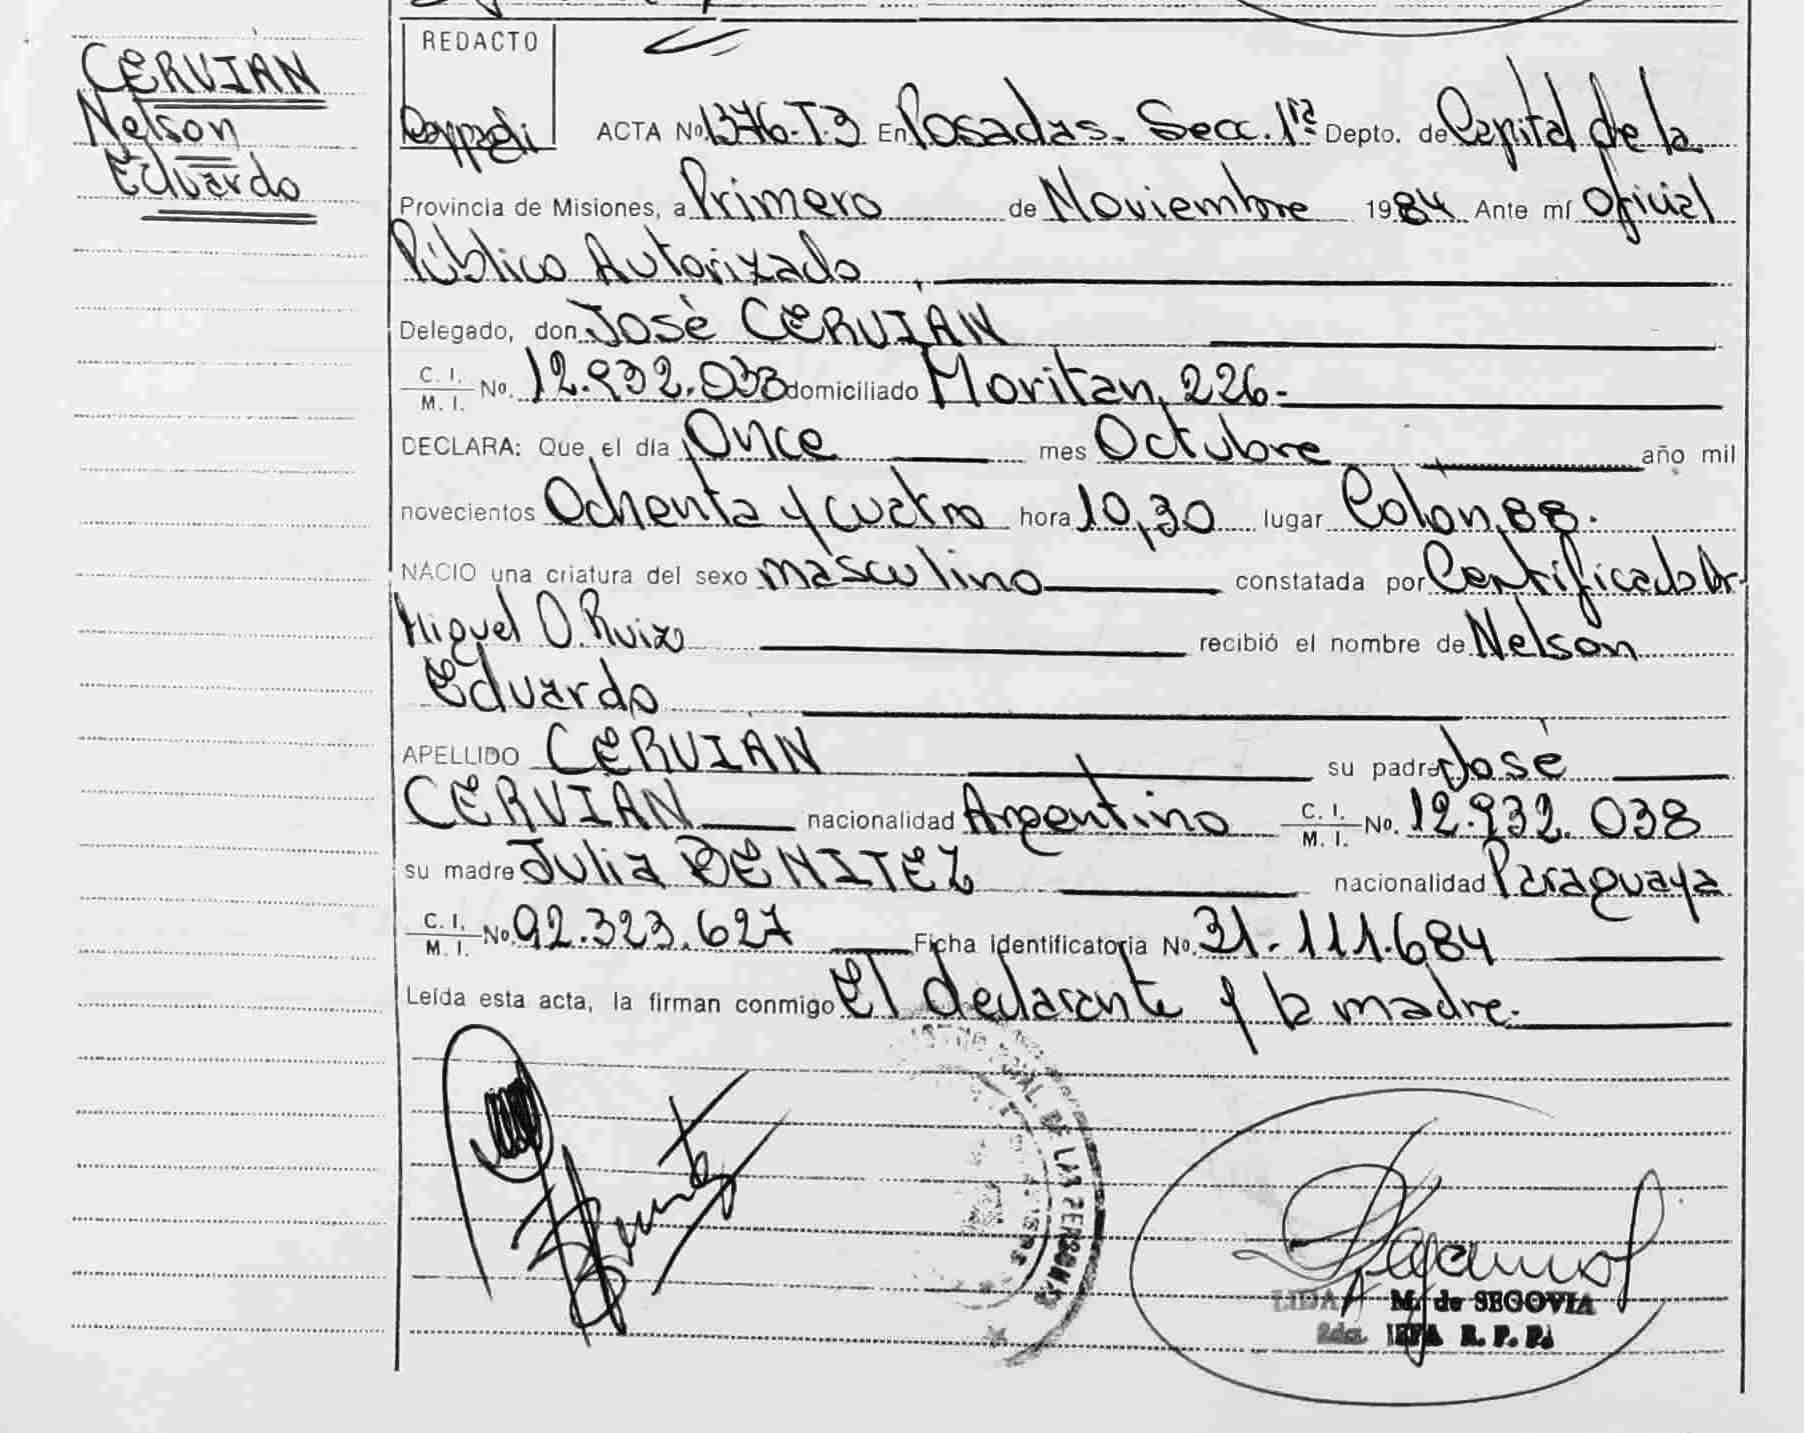 CERVIÁN
Nelson
Eduardo
REDACTO
ACTA Nº 1376-T.3 En Posadas. Secc. 1ra Depto. de Capital de la
Provincia de Misiones, a Primero de Noviembre 1984 Ante mí Oficial
Público Autorizado
Delegado, don José CERVIÁN
C. I. M. I. No. 12.932.038 domiciliado Moritan 226-
DECLARA: Que el día Once mes Octubre año mil
novecientos Ochenta y cuatro hora 10,30 lugar Colón 88.
NACIO una criatura del sexo masculino constatada por Certificado Dr.
Miguel O. Ruiz recibió el nombre de Nelson
Eduardo
APELLIDO CERVIÁN su padre José
CERVIÁN nacionalidad Argentino C. I. M. I. No. 12.932.038
su madre Julia BENITEZ nacionalidad Paraguaya
C. I. M. I. No. 92.323.627 Ficha identificatoria No. 31.111.684
Leída esta acta, la firman conmigo el declarante y la madre.
DE LAS PERSONAS
LIDA M. de SEGOVIA
2da. JEFA R. P. P.